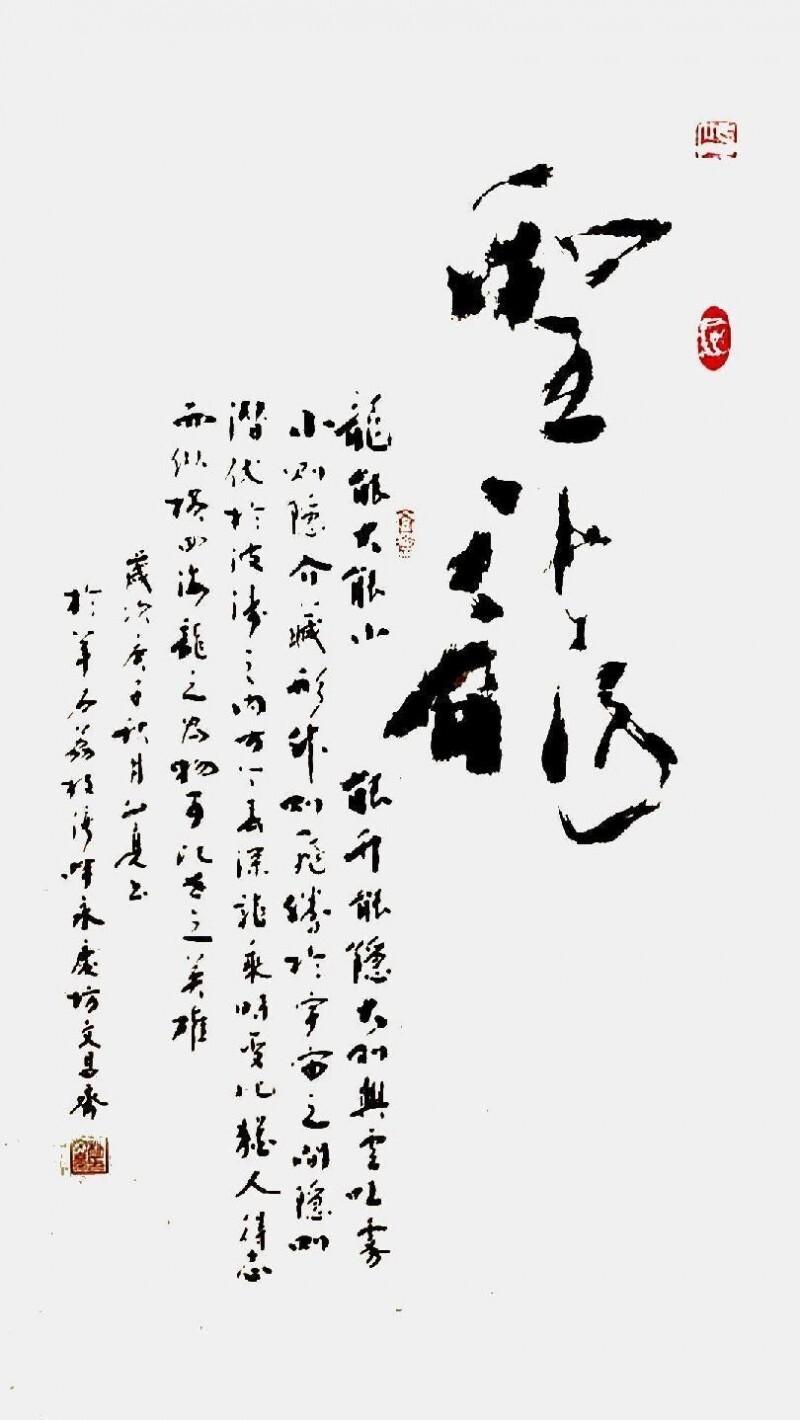 聖龍
龍能大能小 能升能隱大則興雲吐霧
小則隱介藏形升則飛騰於宇宙之間隱則
潛伏於波濤之內方今春深龍乘時變化猶人得志
而縱橫四海龍之為物可比世之英雄
歲次庚子秋月
於羊石荔枝灣畔永慶坊文昌齋